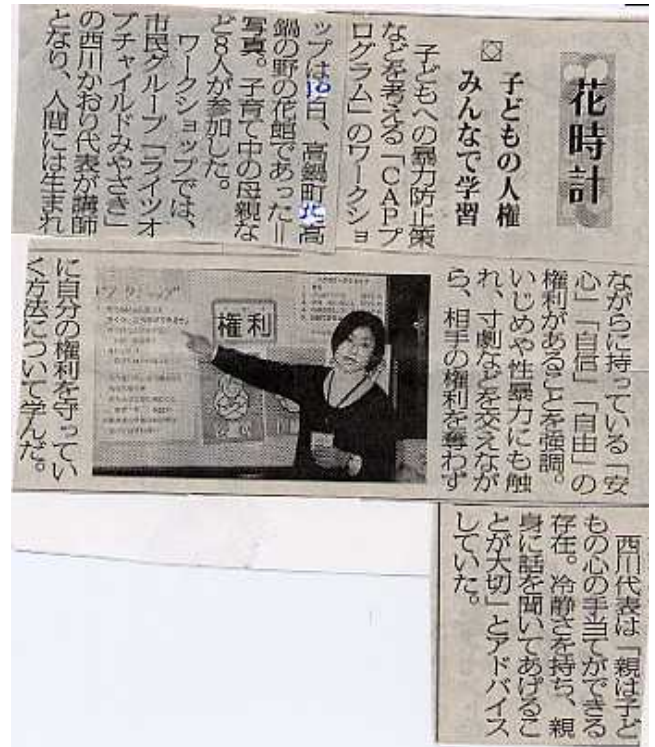 花時計
子どもの人権
みんなで学習
子どもへの暴力防止策
などを考える「CAPプ
ログラム」のワークショ
ップは
日、高鍋町北高
鍋の野の花館であった＝
写真。子育て中の母親な
ど8人が参加した。
ワークショップでは、
市民グループ「ライツオ
ブチャイルドみやざき」
の西川かおり代表が講師
となり、人間には生まれ
ながらに持っている「安
心」「自信」「自由」の
権利があることを強調。
いじめや性暴力にも触
れ、寸劇などを交えなが
ら、相手の権利を奪わず
権利
に自分の権利を守ってい
く方法について学んだ。
西川代表は「親は子ど
もの心の手当てができる
存在。冷静さを持ち、親
身に話を聞いてあげるこ
とが大切」とアドバイス
していた。